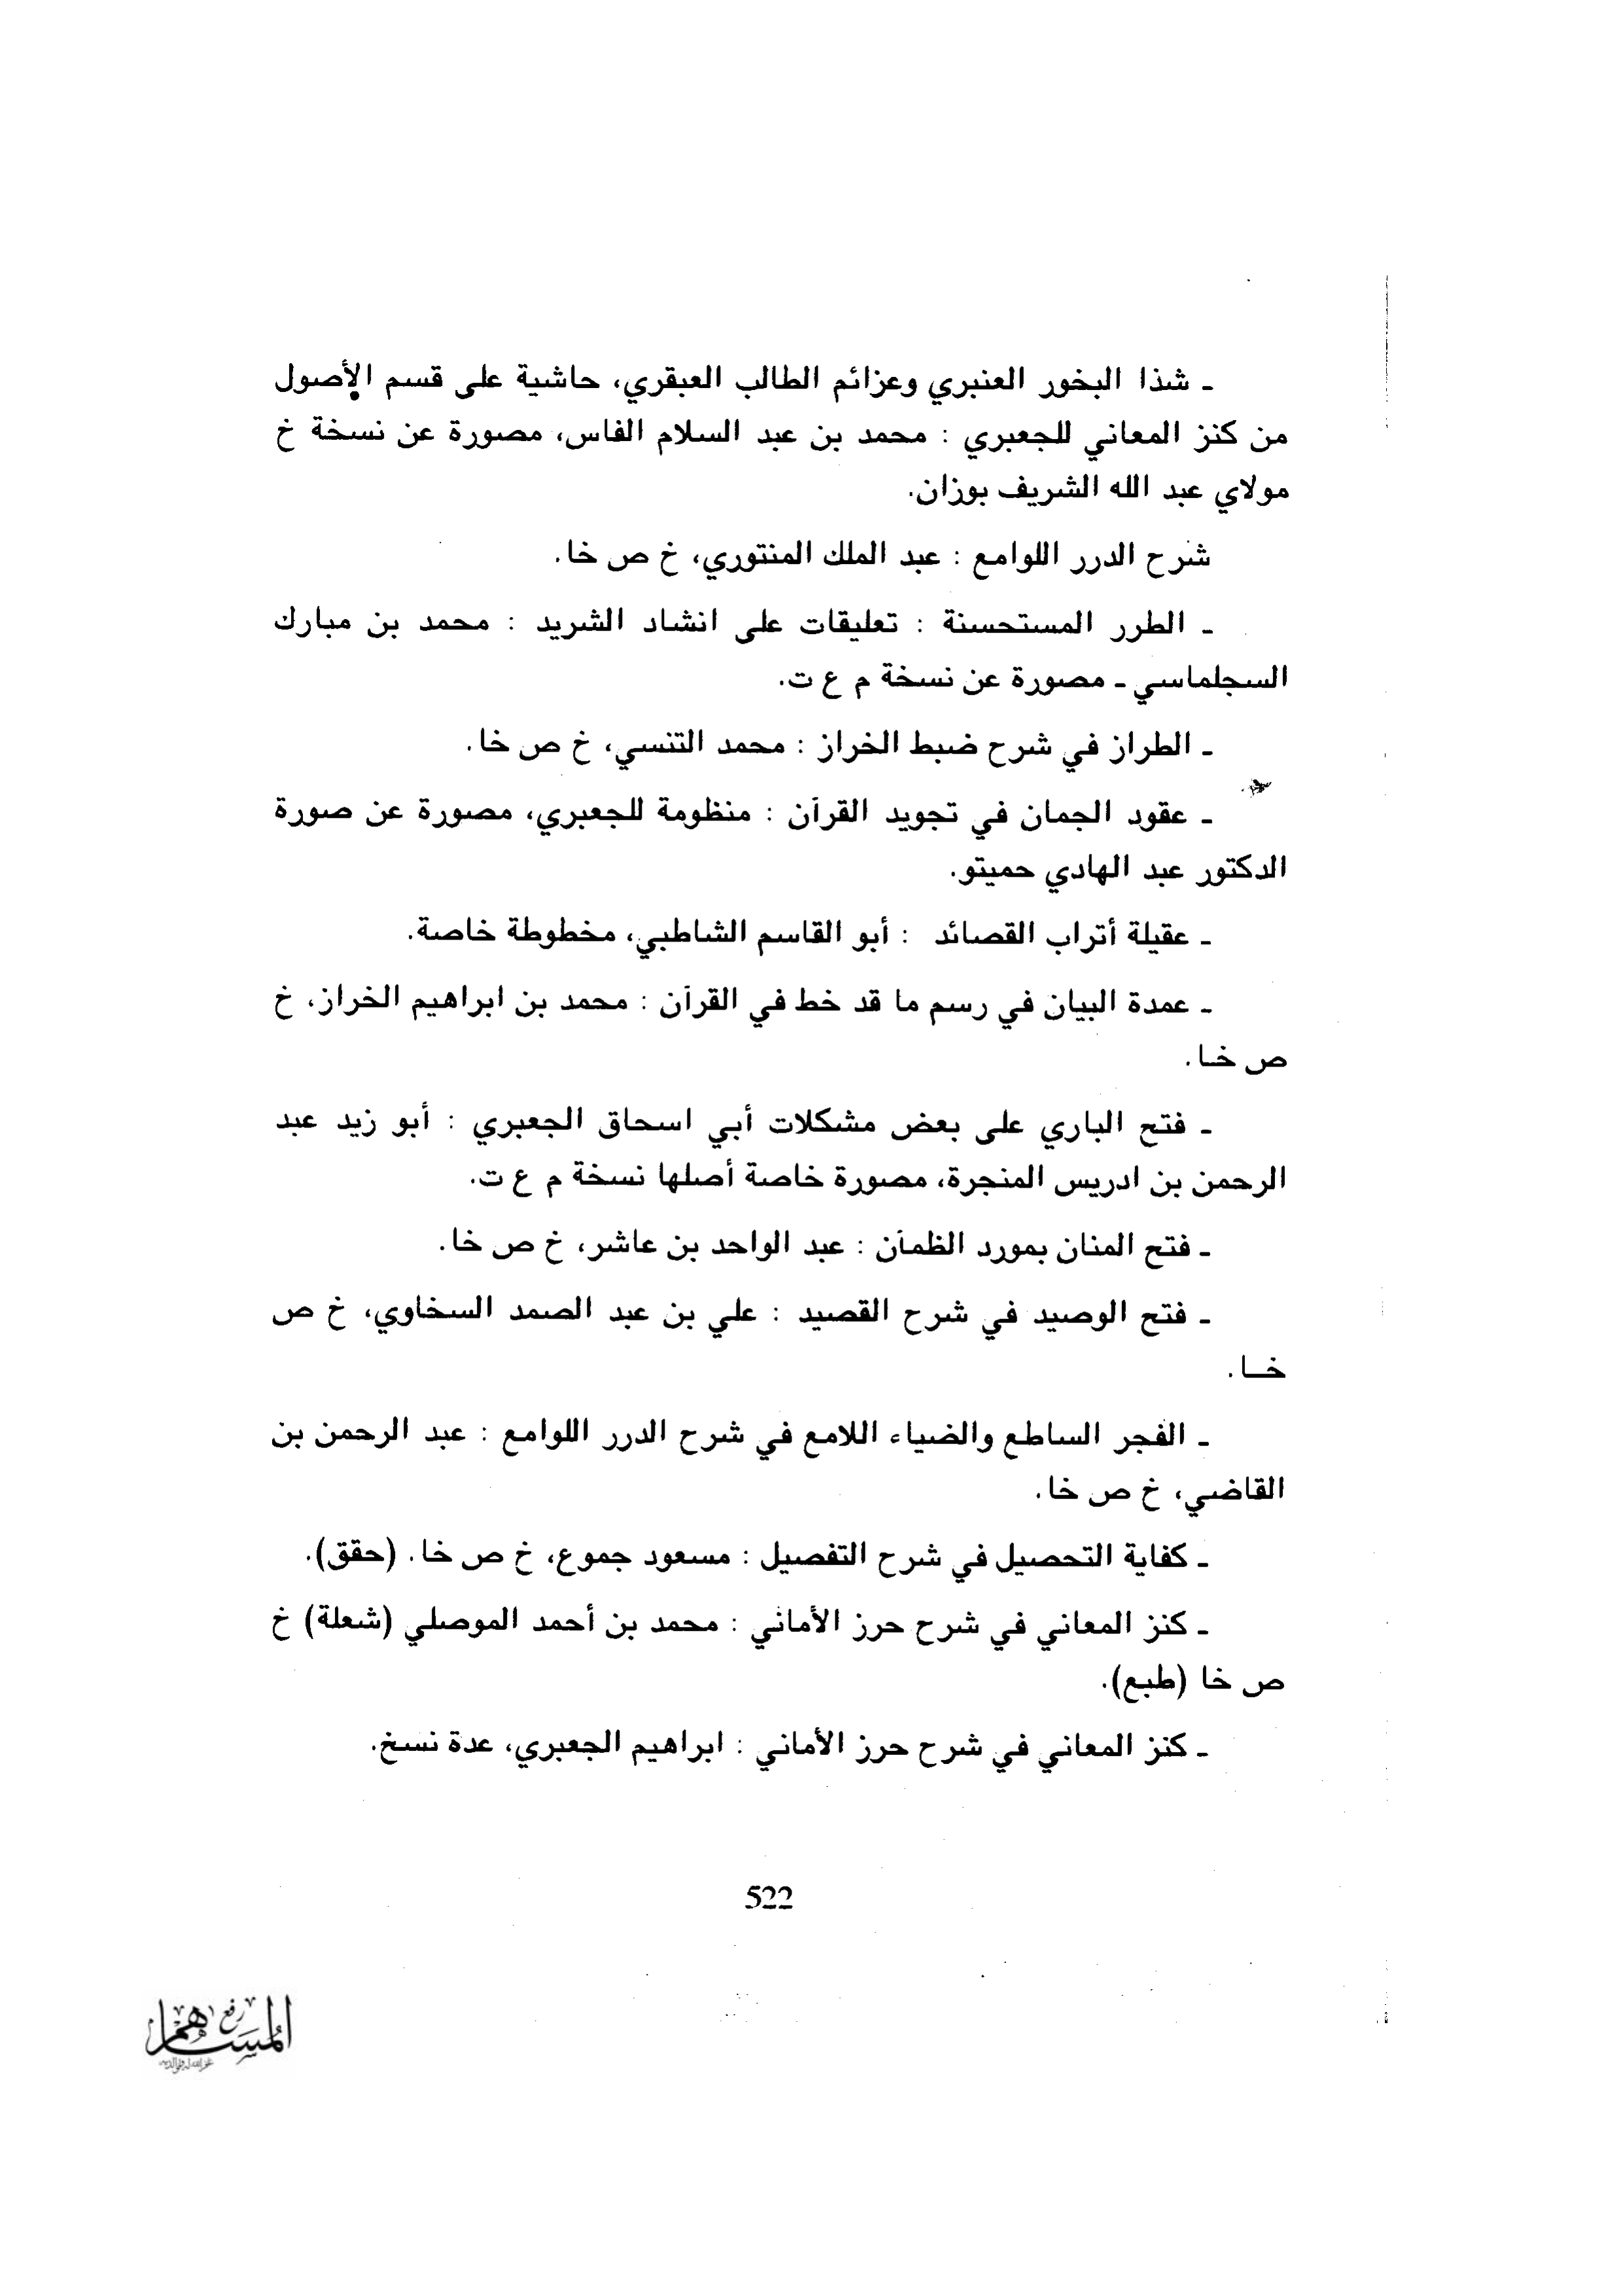 ـ شذا البخور العنبري وعزائم الطالب العبقري، حاشية على قسم الأصول
من كنز المعاني للجعبري : محمد بن عبد السلام الفاس، مصورة عن نسخة خ
مولاي عبد الله الشريف بوزان.
شرح الدرر اللوامع : عبد الملك المنتوري، خ ص خا.
ـ الطرر المستحسنة : تعليقات على انشاد الشريد : محمد بن مبارك
السجلماسي ـ مصورة عن نسخة م ع ت.
ـ الطراز في شرح ضبط الخراز : محمد التنسي، خ ص خا.
ـ عقود الجمان في تجويد القرآن : منظومة للجعبري، مصورة عن صورة
الدكتور عبد الهادي حميتو.
ـ عقيلة أتراب القصائد : أبو القاسم الشاطبي، مخطوطة خاصة.
ـ عمدة البيان في رسم ما قد خط في القرآن : محمد بن ابراهيم الخراز، خ
ص خـا.
ـ فتح الباري على بعض مشكلات أبي اسحاق الجعبري : أبو زيد عبد
الرحمن بن ادريس المنجرة، مصورة خاصة أصلها نسخة م ع ت.
ـ فتح المنان بمورد الظمآن : عبد الواحد بن عاشر، خ ص خا.
ـ فتح الوصيد في شرح القصيد : علي بن عبد الصمد السخاوي، خ ص
خــا.
ـ الفجر الساطع والضياء اللامع في شرح الدرر اللوامع : عبد الرحمن بن
القاضي، خ ص خا.
ـ كفاية التحصيل في شرح التفصيل : مسعود جموع، خ ص خا. (حقق).
ـ كنز المعاني في شرح حرز الأماني : محمد بن أحمد الموصلي (شعلة) خ
ص خا (طبع).
ـ كنز المعاني في شرح حرز الأماني : ابراهيم الجعبري، عدة نسخ.
522